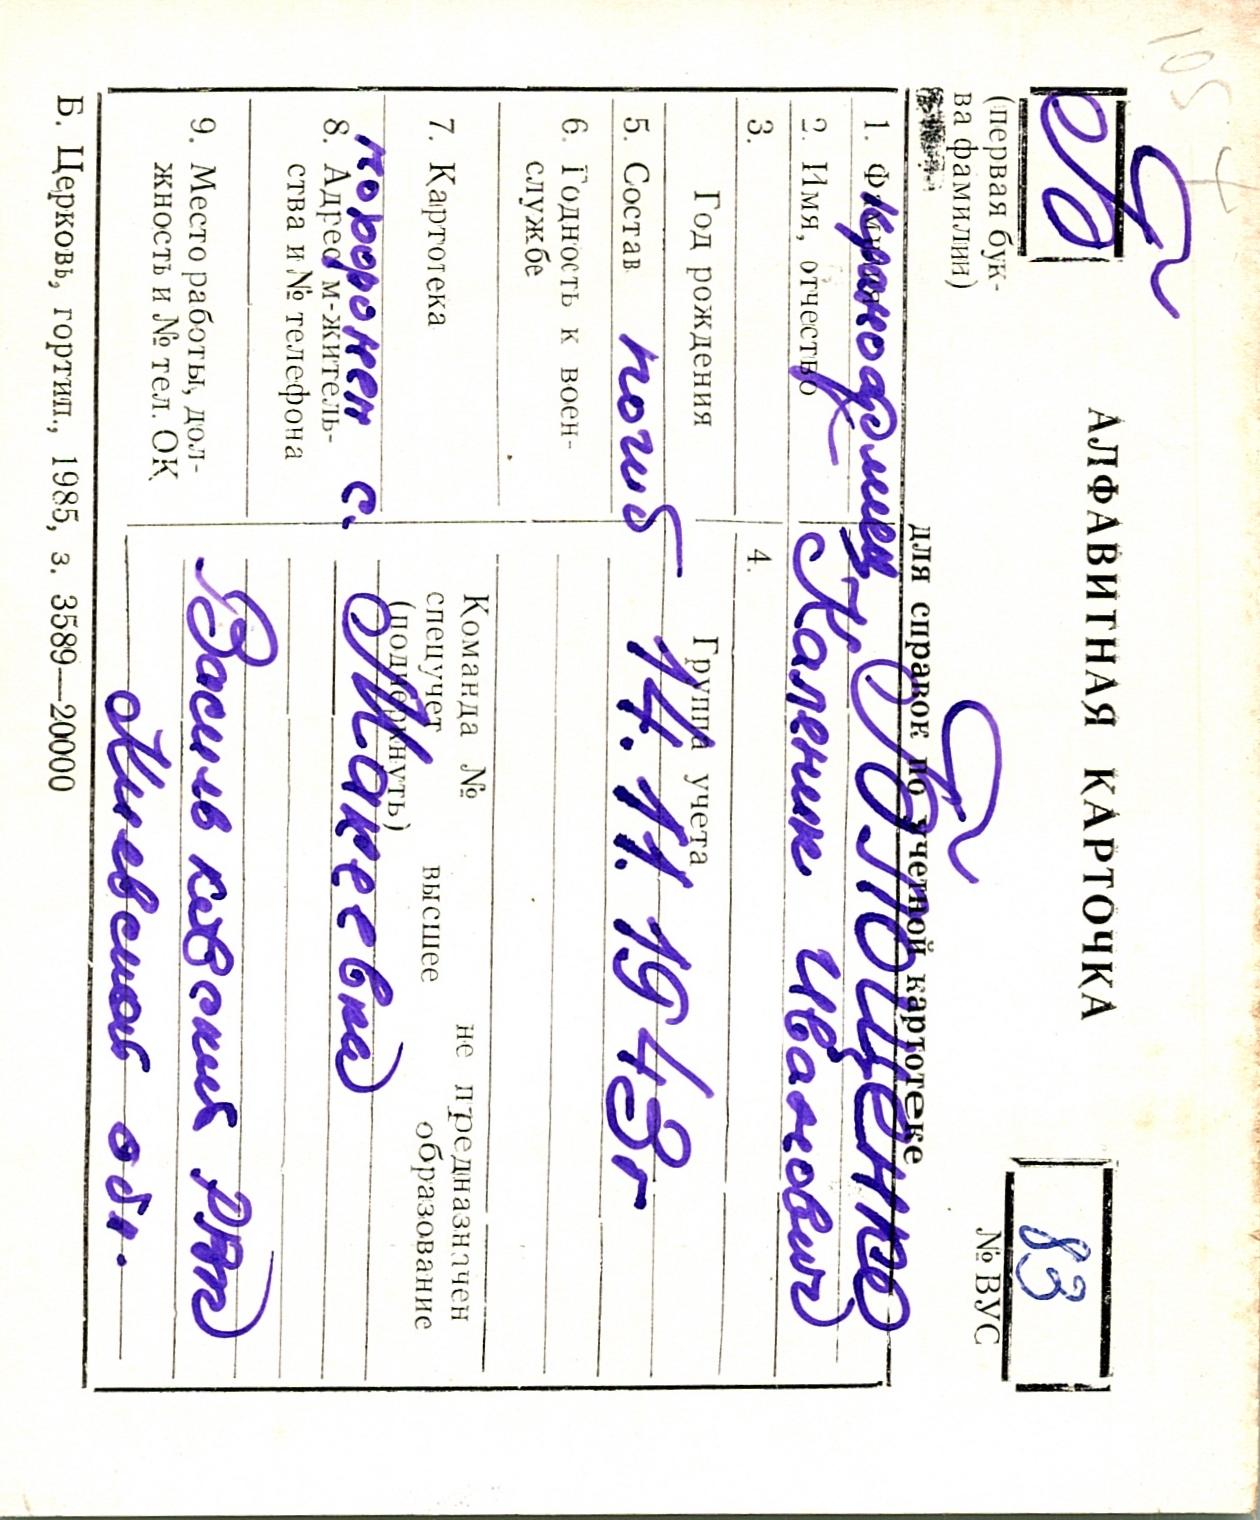 АЛФАВИТНАЯ КАРТОЧКА
83
(первая бук-
ва фамилии)
№ ВУС
для справок по учетной картотеке
1. Фамилия
2. Имя, отчество Каленик Иванович
3.
4.
Год рождения Группа учета
5. Состав погиб 14.11.1943г
6. Годность к воен-
службе
7. Картотека
Команда № не предназначен
спецучет высшее образование
(подчеркнуть)
похоронен с. Макеевка
8. Адрес м-житель-
ства и № телефона
9. Место работы, дол-
жность и № тел. ОК
Васильковский
Киевской обл.
Б. Церковь, гортип., 1985, з. 3589—20000